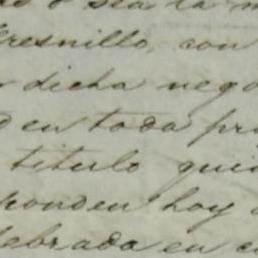 o sea la
Fresnillo, con
dicha nego
en toda pro
titulo qui
ponden hoy
lebrada en